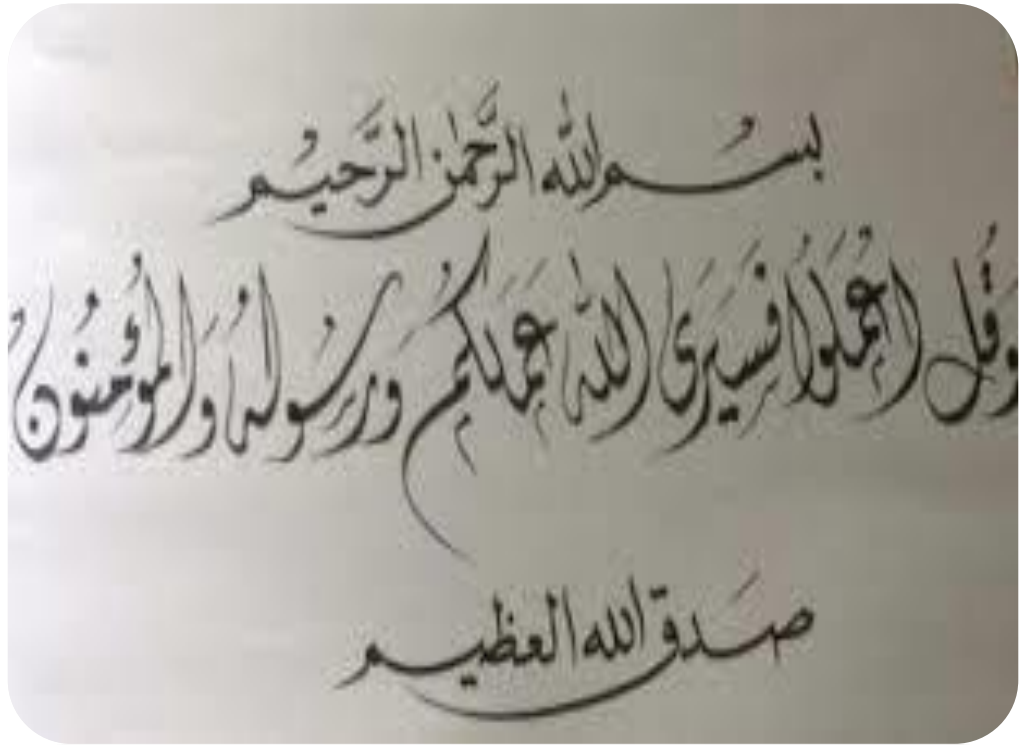 بسم الله الرَّحمٰن الرَّحيم
وَقُل اعْمَلُوا فَسَيَرَى اللّٰه عَمَلَكُم وَرَسُولُهُ وَالمُؤْمِنُونَ
صدق الله العظيم